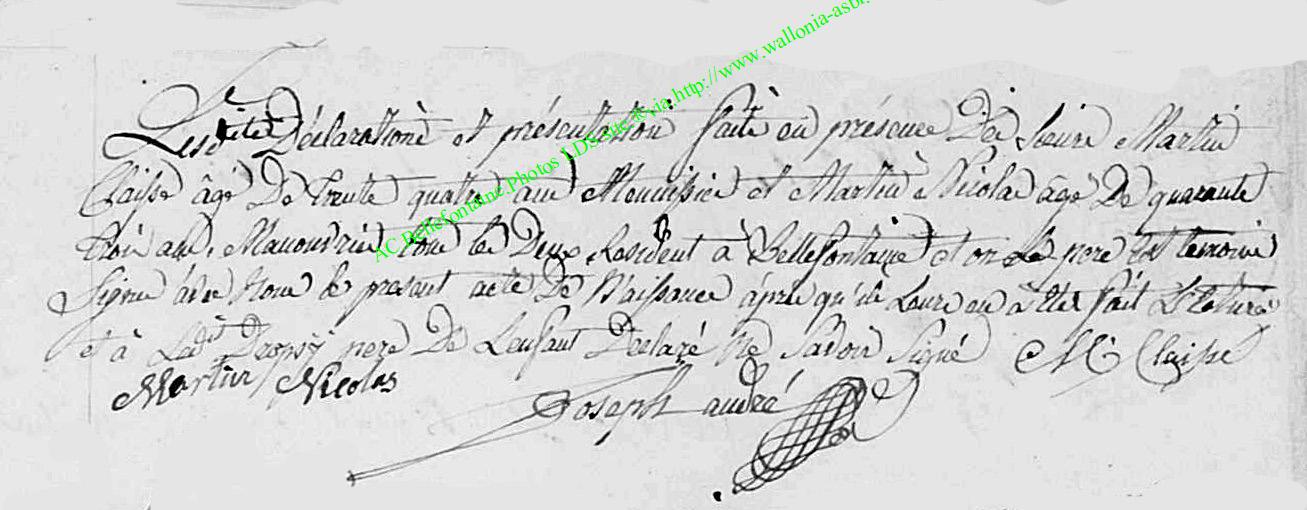 Lesdites Déclarations et présentation faite en présence De Sieur Martin
Claisse âgé De trente quatre ans Menuisier et Martin Nicolas âgé De quarante
trois ans, Manouvrier tous les Deux Resident à Bellefontaine et on Le pere et temoins
Signé avec Nous le present acte De Naissance après qu'il Leure en à etet fait Lectuire
et à Ledt Dropsÿ pere De Lenfant Declaré Ne Savoir Signé M Claisse
Martin Nicolas
Joseph andré
AC Bellefontaine.Photos LDS vue & via http://www.wallonia-asbl